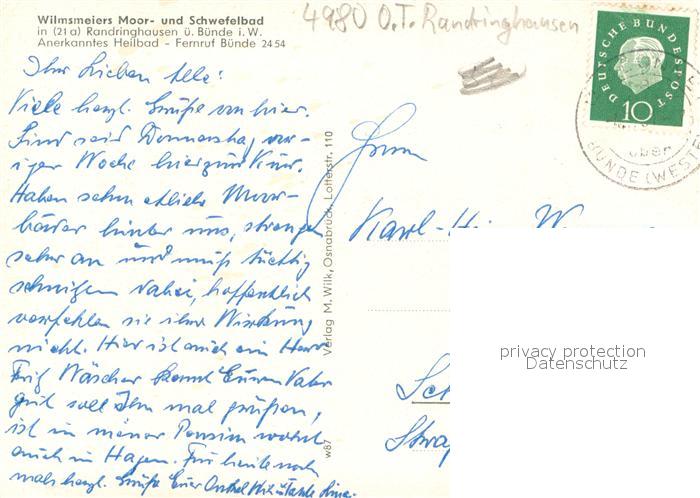 Wilmsmeiers Moor- und Schwefelbad
in (21a) Randringhausen ü. Bünde i. W.
Anerkanntes Heilbad - Fernruf Bünde 2454
4980 O.T. Randringhausen
DEUTSCHE BUNDESPOST
10
über
BÜNDE (WESTF
Ihr Lieben alle!
Viele herzl. Grüße von hier.
Sind seit Donnerstag vor-
iger Woche hier zur Kur.
Haben schon etliche Moor-
bäder hinter uns, strengt
sehr an und muß tüchtig
schwitzen dabei, hoffentlich
verfehlen sie ihre Wirkung
nicht. Hier ist auch ein Herr
Fritz Wäscher kennt Euren Vater
gut soll Ihn mal grüßen,
ist in meiner Pension wohnt
auch in Hagen. Für heute noch
mals herzl. Grüße Euer Onkel u. Tante
Verlag M. Wilk, Osnabrück, Lotterstr. 110
w87
Herrn
Karl-
privacy protection
Datenschutz